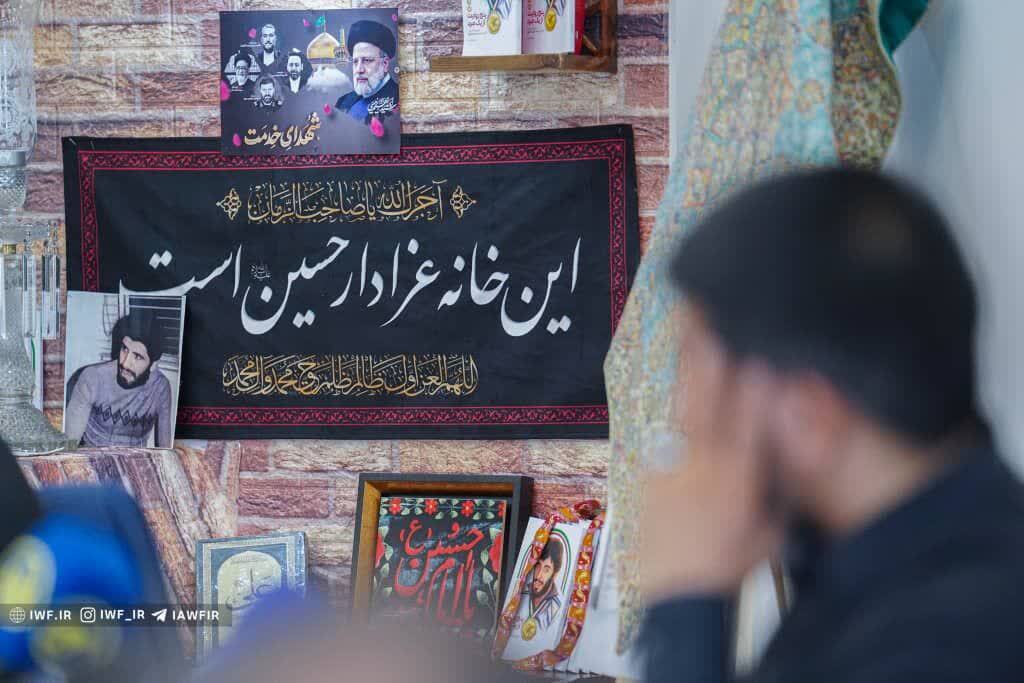 شهدای خدمت
آجرک الله یا صاحب الزمان
این خانه عزادار حسین است
اللهم العن اول ظالم ظلم حق محمد و آل محمد
یا امام حسین
IWF.IR IWF_IR IAWFIR